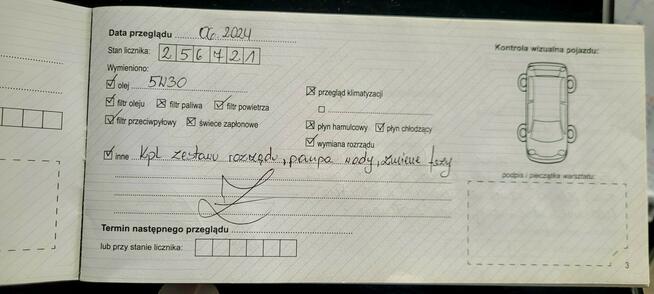 Data przeglądu 06. 2024
Kontrola wizualna pojazdu:
Stan licznika: 256721
Wymieniono:
olej 5W30
przegląd klimatyzacji
filtr oleju filtr paliwa filtr powietrza
filtr przeciwpyłowy świece zapłonowe płyn hamulcowy płyn chłodzący
wymiana rozrządu
inne Kpl zestawu rozrządu, pompa wody,
podpis i pieczątka warsztatu:
Termin następnego przeglądu
lub przy stanie licznika:
3